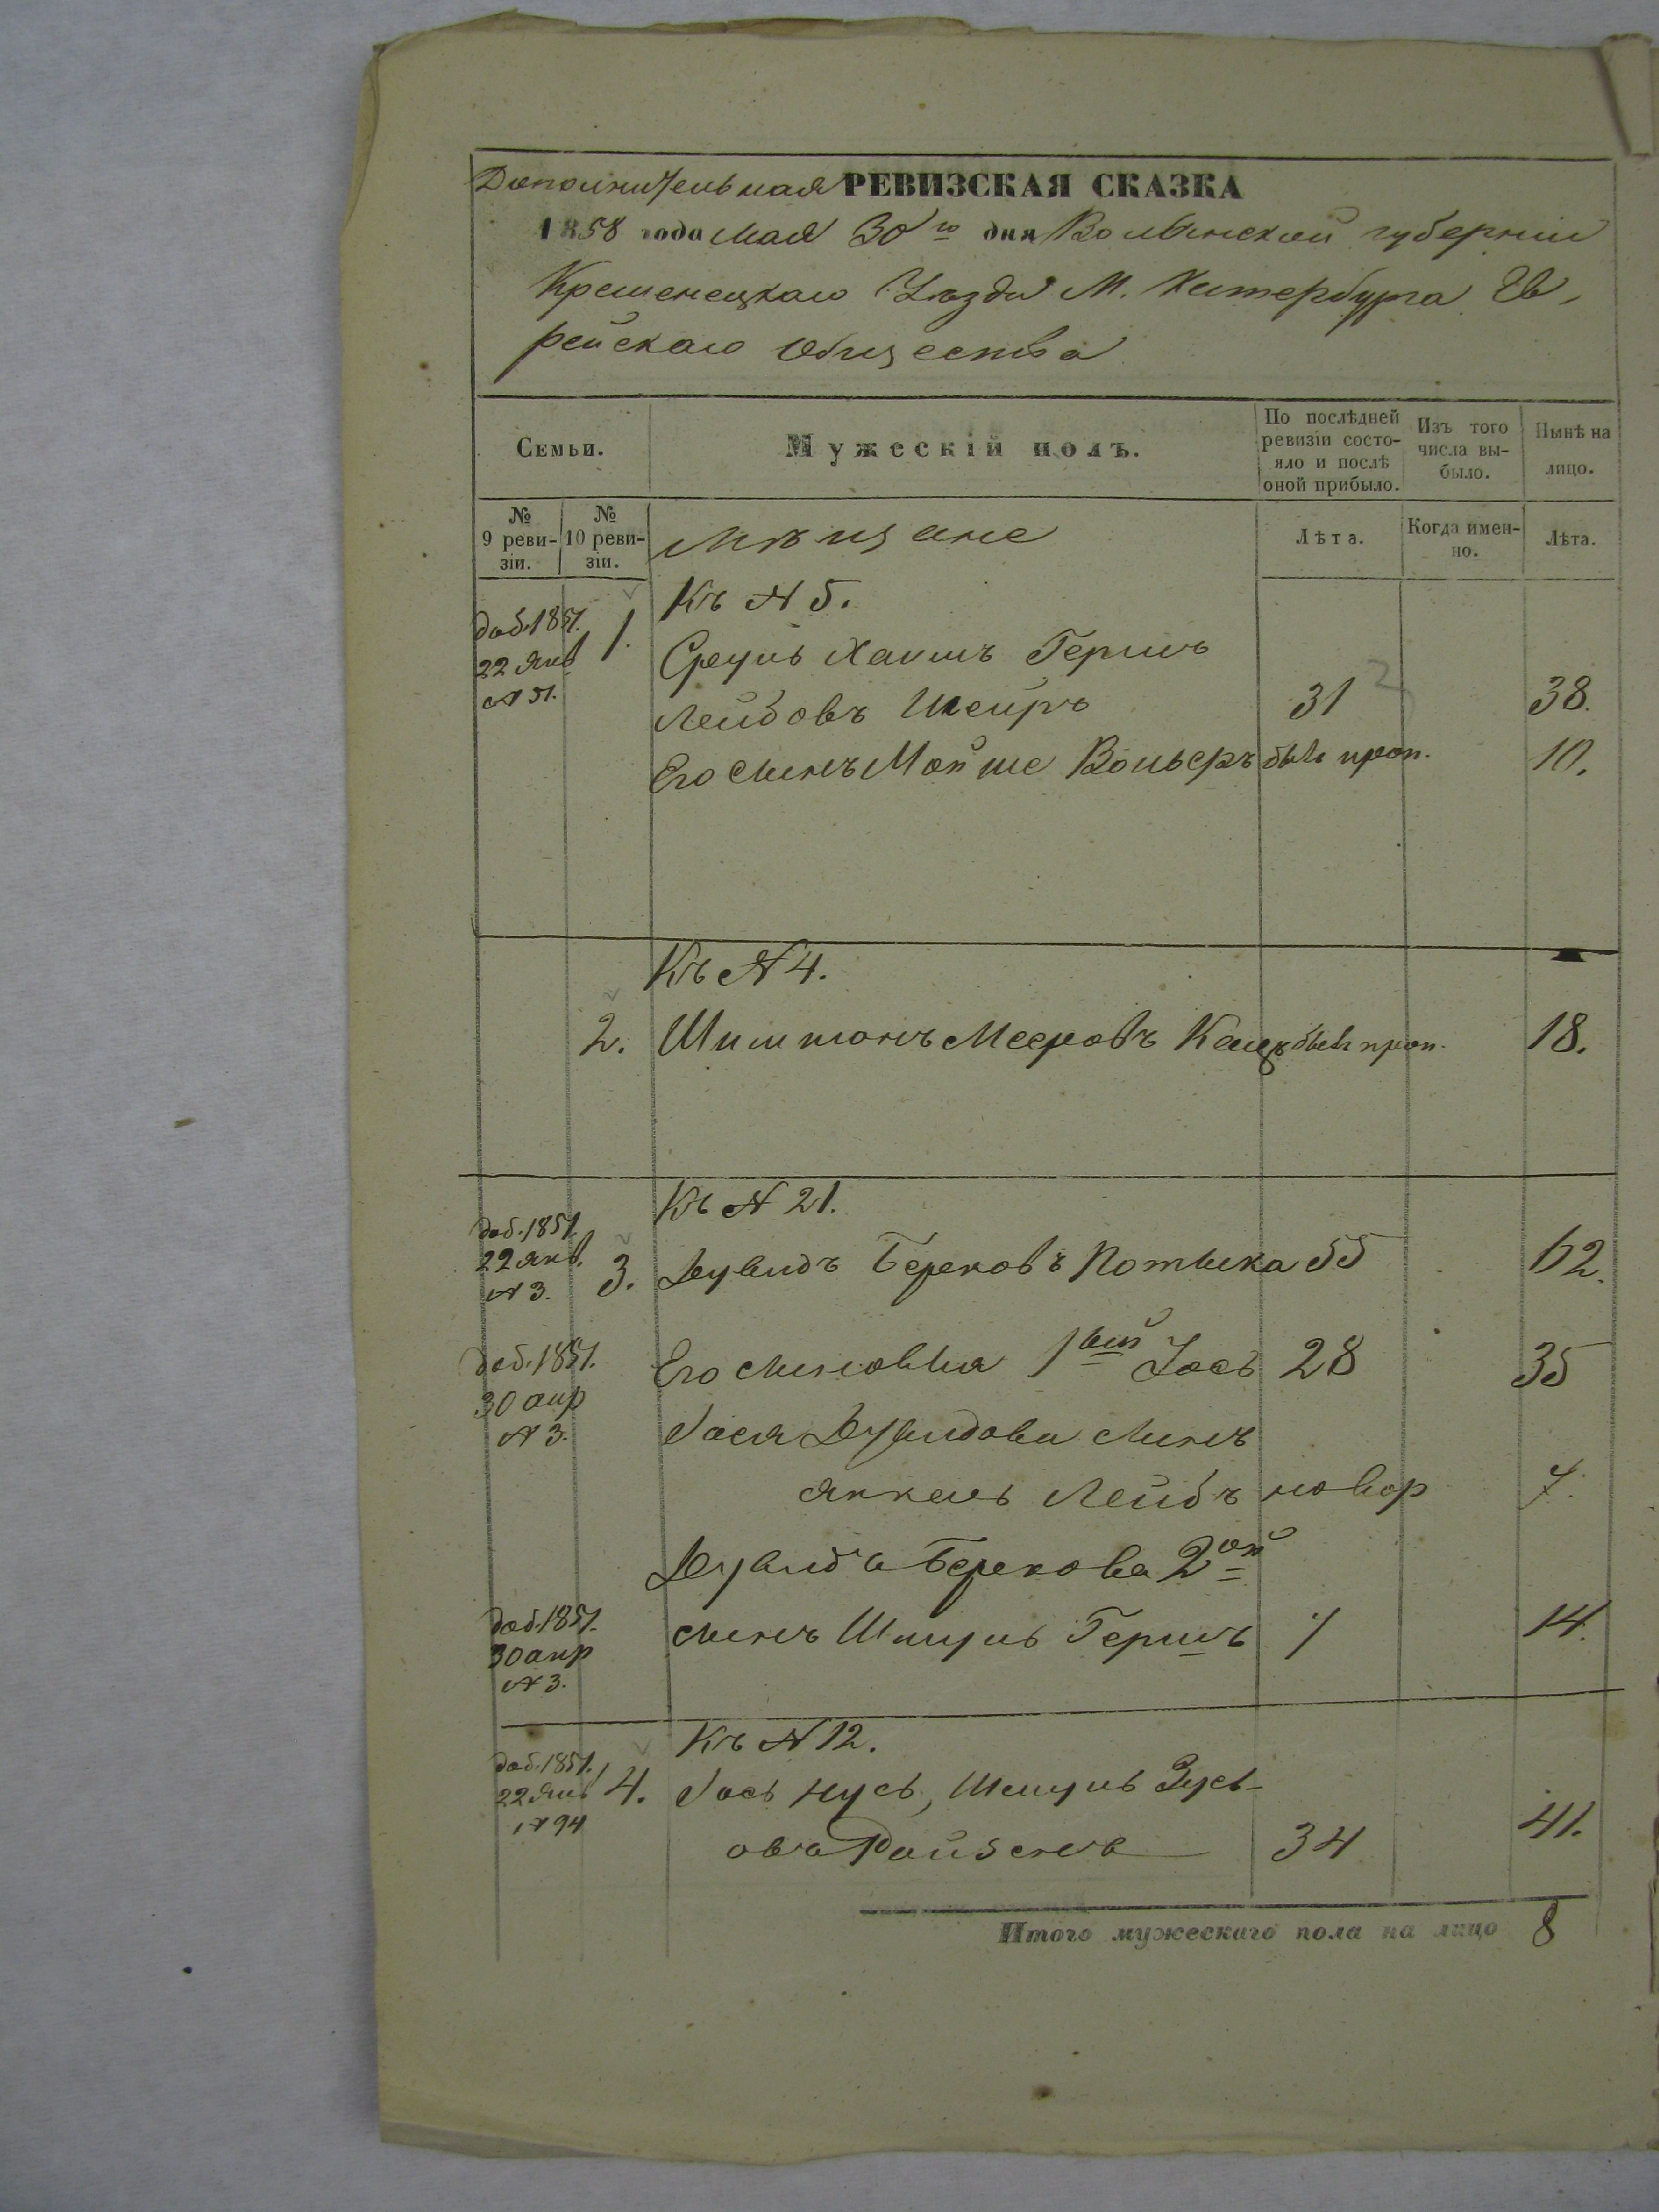 Дополнительная РЕВИЗСКАЯ СКАЗКА
1858 года Мая 30го дня Волынской губернии
Кременецкаго Уезда М. Катербурга Ев-
рейскаго Общества
Семьи.
Мужескій полъ.
По послѣдней ревизіи состо-яло и послѣ оной прибыло.
Изъ того числа вы-было.
Нынѣ на лицо.
№ 9 реви-зіи.
№ 10 реви-зіи.
Мѣщане
Лѣта.
Когда имен-но.
Лѣта.
Къ № 5.
доб. 1851. 1.
22 Янв Сруль Хаимъ Гершъ
№ 51. Лейбовъ 31 38.
Его сынъ Мойше Вольфъ былъ проп. 10.
Къ № 4.
2. Шимшонъ Мееровъ Кацъ былъ проп. 18.
Къ № 21.
доб. 1851.
22 Янв. 3. Дувидъ Берковъ Потыка 55 62.
№ 3.
доб. 1851. Его сыновья 1ый Іось 28 35
30 апр
№ 3. Іося Дувидова сынъ
Янкель Лейбъ новор 7.
Дувида Беркова 2ой
доб. 1851. сынъ Шмуль Гершъ 7 14.
30 апр
№ 3.
Къ № 12.
доб. 1851.
22 Янв 4. Іось Нусь, Шмуль Зусь-
№ 94 овъ Ройзенъ 34 41.
Итого мужескаго пола на лицо 8